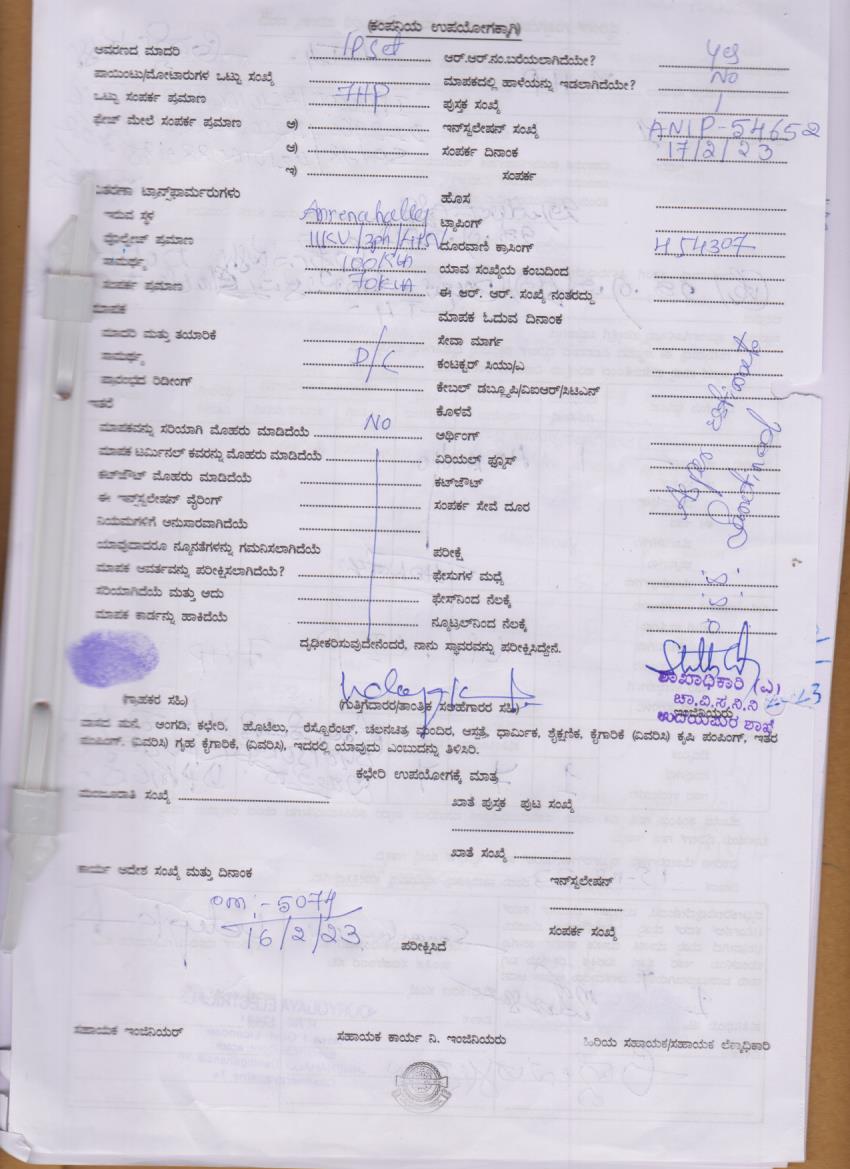 (ಕಂಪನಿಯ ಉಪಯೋಗಕ್ಕಾಗಿ)
ಆವರಣದ ಮಾದರಿ IPset ಆರ್.ಆರ್.ನಂ.ಬರೆಯಲಾಗಿದೆಯೇ? Yes
ಪಾಯಿಂಟು/ಮೋಟಾರುಗಳ ಒಟ್ಟು ಸಂಖ್ಯೆ ಮಾಪಕದಲ್ಲಿ ಹಾಳೆಯನ್ನು ಇಡಲಾಗಿದೆಯೇ? No
ಒಟ್ಟು ಸಂಪರ್ಕ ಪ್ರಮಾಣ 7HP ಪುಸ್ತಕ ಸಂಖ್ಯೆ /
ಫೇಜ್ ಮೇಲೆ ಸಂಪರ್ಕ ಪ್ರಮಾಣ ಅ) ಇನ್‌ಸ್ಟಲೇಷನ್ ಸಂಖ್ಯೆ ANIP-54652
ಆ) ಸಂಪರ್ಕ ದಿನಾಂಕ 17/2/23
ಇ) ಸಂಪರ್ಕ
ವಿತರಣಾ ಟ್ರಾನ್ಸ್‌ಫಾರ್ಮರುಗಳು ಹೊಸ
ಇರುವ ಸ್ಥಳ ಟ್ಯಾಪಿಂಗ್
ವೋಲ್ಟೇಜ್ ಪ್ರಮಾಣ 11KV/3ph/ ದೂರವಾಣಿ ಕ್ರಾಸಿಂಗ್ 454307
ಸಾಮರ್ಥ್ಯ 100KVA ಯಾವ ಸಂಖ್ಯೆಯ ಕಂಬದಿಂದ
ಸಂಪರ್ಕ ಪ್ರಮಾಣ 70KVA ಈ ಆರ್. ಆರ್. ಸಂಖ್ಯೆ ನಂತರದ್ದು
ಮಾಪಕ ಮಾಪಕ ಓದುವ ದಿನಾಂಕ
ಮಾದರಿ ಮತ್ತು ತಯಾರಿಕೆ ಸೇವಾ ಮಾರ್ಗ
ಸಾಮರ್ಥ್ಯ D/C ಕಂಟಕ್ಟರ್ ಸಿಯು/ಎ
ಪ್ರಾರಂಭದ ರಿಡೀಂಗ್ ಕೇಬಲ್ ಡಬ್ಲ್ಯೂಪಿ/ವಿಐಆರ್/ಸಿಟಿಎನ್
ಇತರೆ ಕೊಳವೆ
ಮಾಪಕವನ್ನು ಸರಿಯಾಗಿ ಮೊಹರು ಮಾಡಿದೆಯೆ No ಅರ್ಥಿಂಗ್
ಮಾಪಕ ಟರ್ಮಿನಲ್ ಕವರನ್ನು ಮೊಹರು ಮಾಡಿದೆಯೆ ಏರಿಯಲ್ ಫ್ಯೂಸ್
ಕಟ್‌ಔಟ್ ಮೊಹರು ಮಾಡಿದೆಯೆ ಕಟ್‌ಔಟ್
ಈ ಇನ್‌ಸ್ಟಲೇಷನ್ ವೈರಿಂಗ್ ಸಂಪರ್ಕ ಸೇವೆ ದೂರ
ನಿಯಮಗಳಿಗೆ ಅನುಸಾರವಾಗಿದೆಯೆ
ಯಾವುದಾದರೂ ನ್ಯೂನತೆಗಳನ್ನು ಗಮನಿಸಲಾಗಿದೆಯೆ ಪರೀಕ್ಷೆ
ಮಾಪಕ ಆವರ್ತವನ್ನು ಪರೀಕ್ಷಿಸಲಾಗಿದೆಯೆ? ಫೇಸುಗಳ ಮಧ್ಯೆ
ಸರಿಯಾಗಿದೆಯೆ ಮತ್ತು ಅದು ಫೇಸ್‌ನಿಂದ ನೆಲಕ್ಕೆ
ಮಾಪಕ ಕಾರ್ಡನ್ನು ಹಾಕಿದೆಯೆ ನ್ಯೂಟ್ರಲ್‌ನಿಂದ ನೆಲಕ್ಕೆ
ದೃಢೀಕರಿಸುವುದೇನೆಂದರೆ, ನಾನು ಸ್ಥಾವರವನ್ನು ಪರೀಕ್ಷಿಸಿದ್ದೇನೆ.
ಶಾಖಾಧಿಕಾರಿ (ಎ)
(ಗ್ರಾಹಕರ ಸಹಿ) (ಗುತ್ತಿಗೆದಾರರ/ತಾಂತ್ರಿಕ ಸಲಹೆಗಾರರ ಸಹಿ) ಚಾ.ವಿ.ಸ.ನಿ.ನಿ
ಇಂಜಿನಿಯರು
ಉದಯಪುರ ಶಾಖೆ
ವಾಸದ ಮನೆ, ಅಂಗಡಿ, ಕಛೇರಿ, ಹೊಟೆಲು, ರೆಸ್ಟೋರೆಂಟ್, ಚಲನಚಿತ್ರ ಮಂದಿರ, ಆಸ್ಪತ್ರೆ, ಧಾರ್ಮಿಕ, ಶೈಕ್ಷಣಿಕ, ಕೈಗಾರಿಕೆ (ವಿವರಿಸಿ) ಕೃಷಿ ಪಂಪಿಂಗ್, ಇತರ
ಪಂಪಿಂಗ್. (ವಿವರಿಸಿ) ಗೃಹ ಕೈಗಾರಿಕೆ, (ವಿವರಿಸಿ), ಇದರಲ್ಲಿ ಯಾವುದು ಎಂಬುದನ್ನು ತಿಳಿಸಿರಿ.
ಕಛೇರಿ ಉಪಯೋಗಕ್ಕೆ ಮಾತ್ರ
ಮಂಜೂರಾತಿ ಸಂಖ್ಯೆ ಖಾತೆ ಪುಸ್ತಕ ಪುಟ ಸಂಖ್ಯೆ
ಖಾತೆ ಸಂಖ್ಯೆ
ಕಾರ್ಯ ಆದೇಶ ಸಂಖ್ಯೆ ಮತ್ತು ದಿನಾಂಕ ಇನ್‌ಸ್ಟಲೇಷನ್
om:-5074
16/2/23 ಪರೀಕ್ಷಿಸಿದೆ ಸಂಪರ್ಕ ಸಂಖ್ಯೆ
ಸಹಾಯಕ ಇಂಜಿನಿಯರ್ ಸಹಾಯಕ ಕಾರ್ಯ ನಿ. ಇಂಜಿನಿಯರು ಹಿರಿಯ ಸಹಾಯಕ/ಸಹಾಯಕ ಲೆಕ್ಕಾಧಿಕಾರಿ